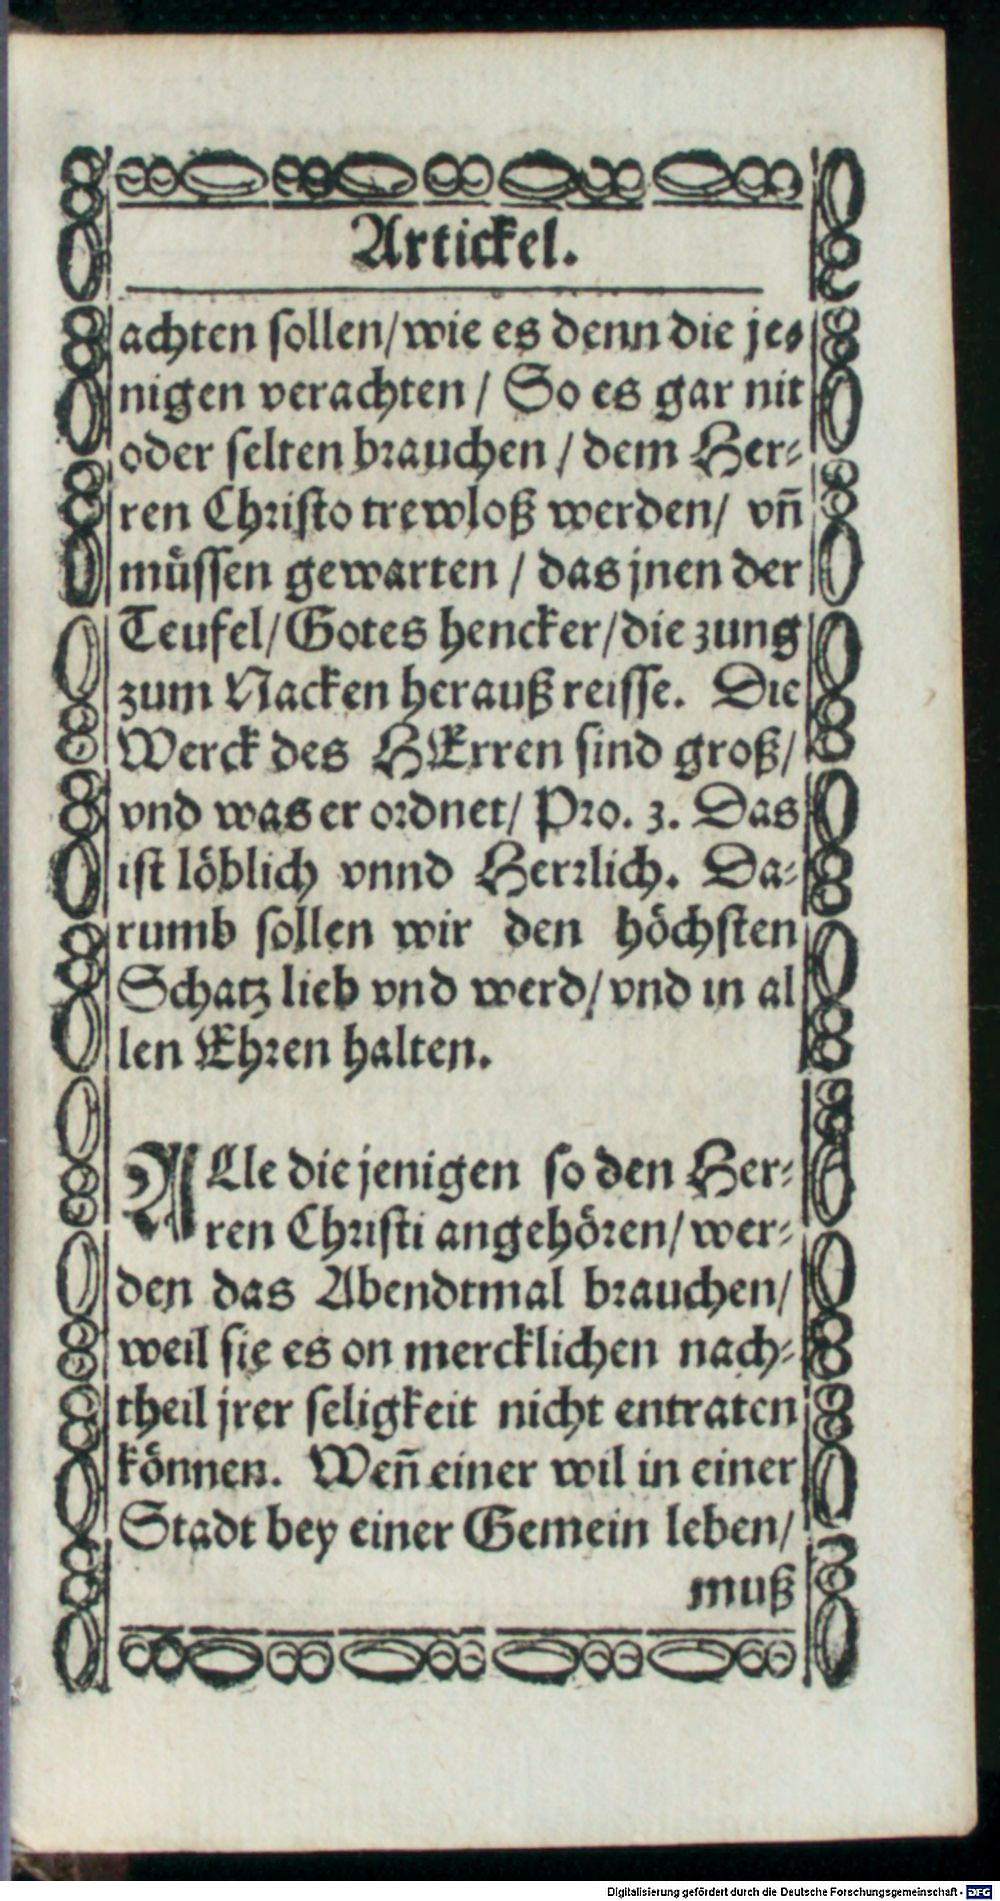 Artickel.
achten sollen/wie es denn die je-
nigen verachten / So es gar nit
oder selten brauchen / dem Her-
ren Christo trewloß werden/ vñ
müssen gewarten / das jnen der
Teufel/Gotes hencker/die zung
zum Nacken herauß reisse. Die
Werck des HErren sind groß/
vnd was er ordnet/ Pro. 3. Das
ist löblich vnnd Herrlich. Da-
rumb sollen wir den höchsten
Schatz lieb vnd werd/vnd in al
len Ehren halten.
ALle die jenigen so den Her-
ren Christi angehören/wer-
den das Abendtmal brauchen/
weil sie es on mercklichen nach-
theil jrer seligkeit nicht entraten
können. Weñ einer wil in einer
Stadt bey einer Gemein leben/
muß
Digitalisierung gefördert durch die Deutsche Forschungsgemeinschaft - DFG